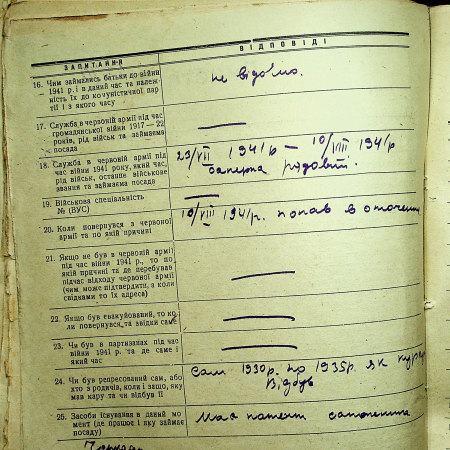 ЗАПИТАННЯ
ВІДПОВІДІ
16. Чим займались батьки до війни
— 1941 р. і в даний час та належ-
ність їх до комуністичної пар-
тії і з якого часу
не відомо.
17. Служба в червоній армії під час
громадянської війни 1917—22
років, рід військ та займаема
посада
18. Служба в червоній армії під
час війни 1941 року, який час,
рід військ, останнє військове
звання та займаема посада
23/VII 1941 р — 10/VIII 1941 р
рядовий.
19. Військова спеціальність
№ (ВУС)
20. Коли повернувся з червоної
армії та по якій причині
10/VIII 1941 р. попав в оточення
21. Якщо не був в червоній армії
під час війни 1941 р., то по
якій причині та де перебував
під час відходу червоної армії
(чим може підтвердити, в коли
свідками то їх адреса)
22. Якщо був евакуйований, то ко-
ли повернувся, та звідки саме
23. Чи був в партизанах під час
війни 1941 р. та де саме і
який час
24. Чи був репресований сам, або
хто з родичів, коли і защо, яку
мав кару та чи відбув її
Сам 1930 р. по 1935 р. як
Відбув
25. Засоби існування в даний мо-
мент (де працює і яку займає
посаду)
Має патент